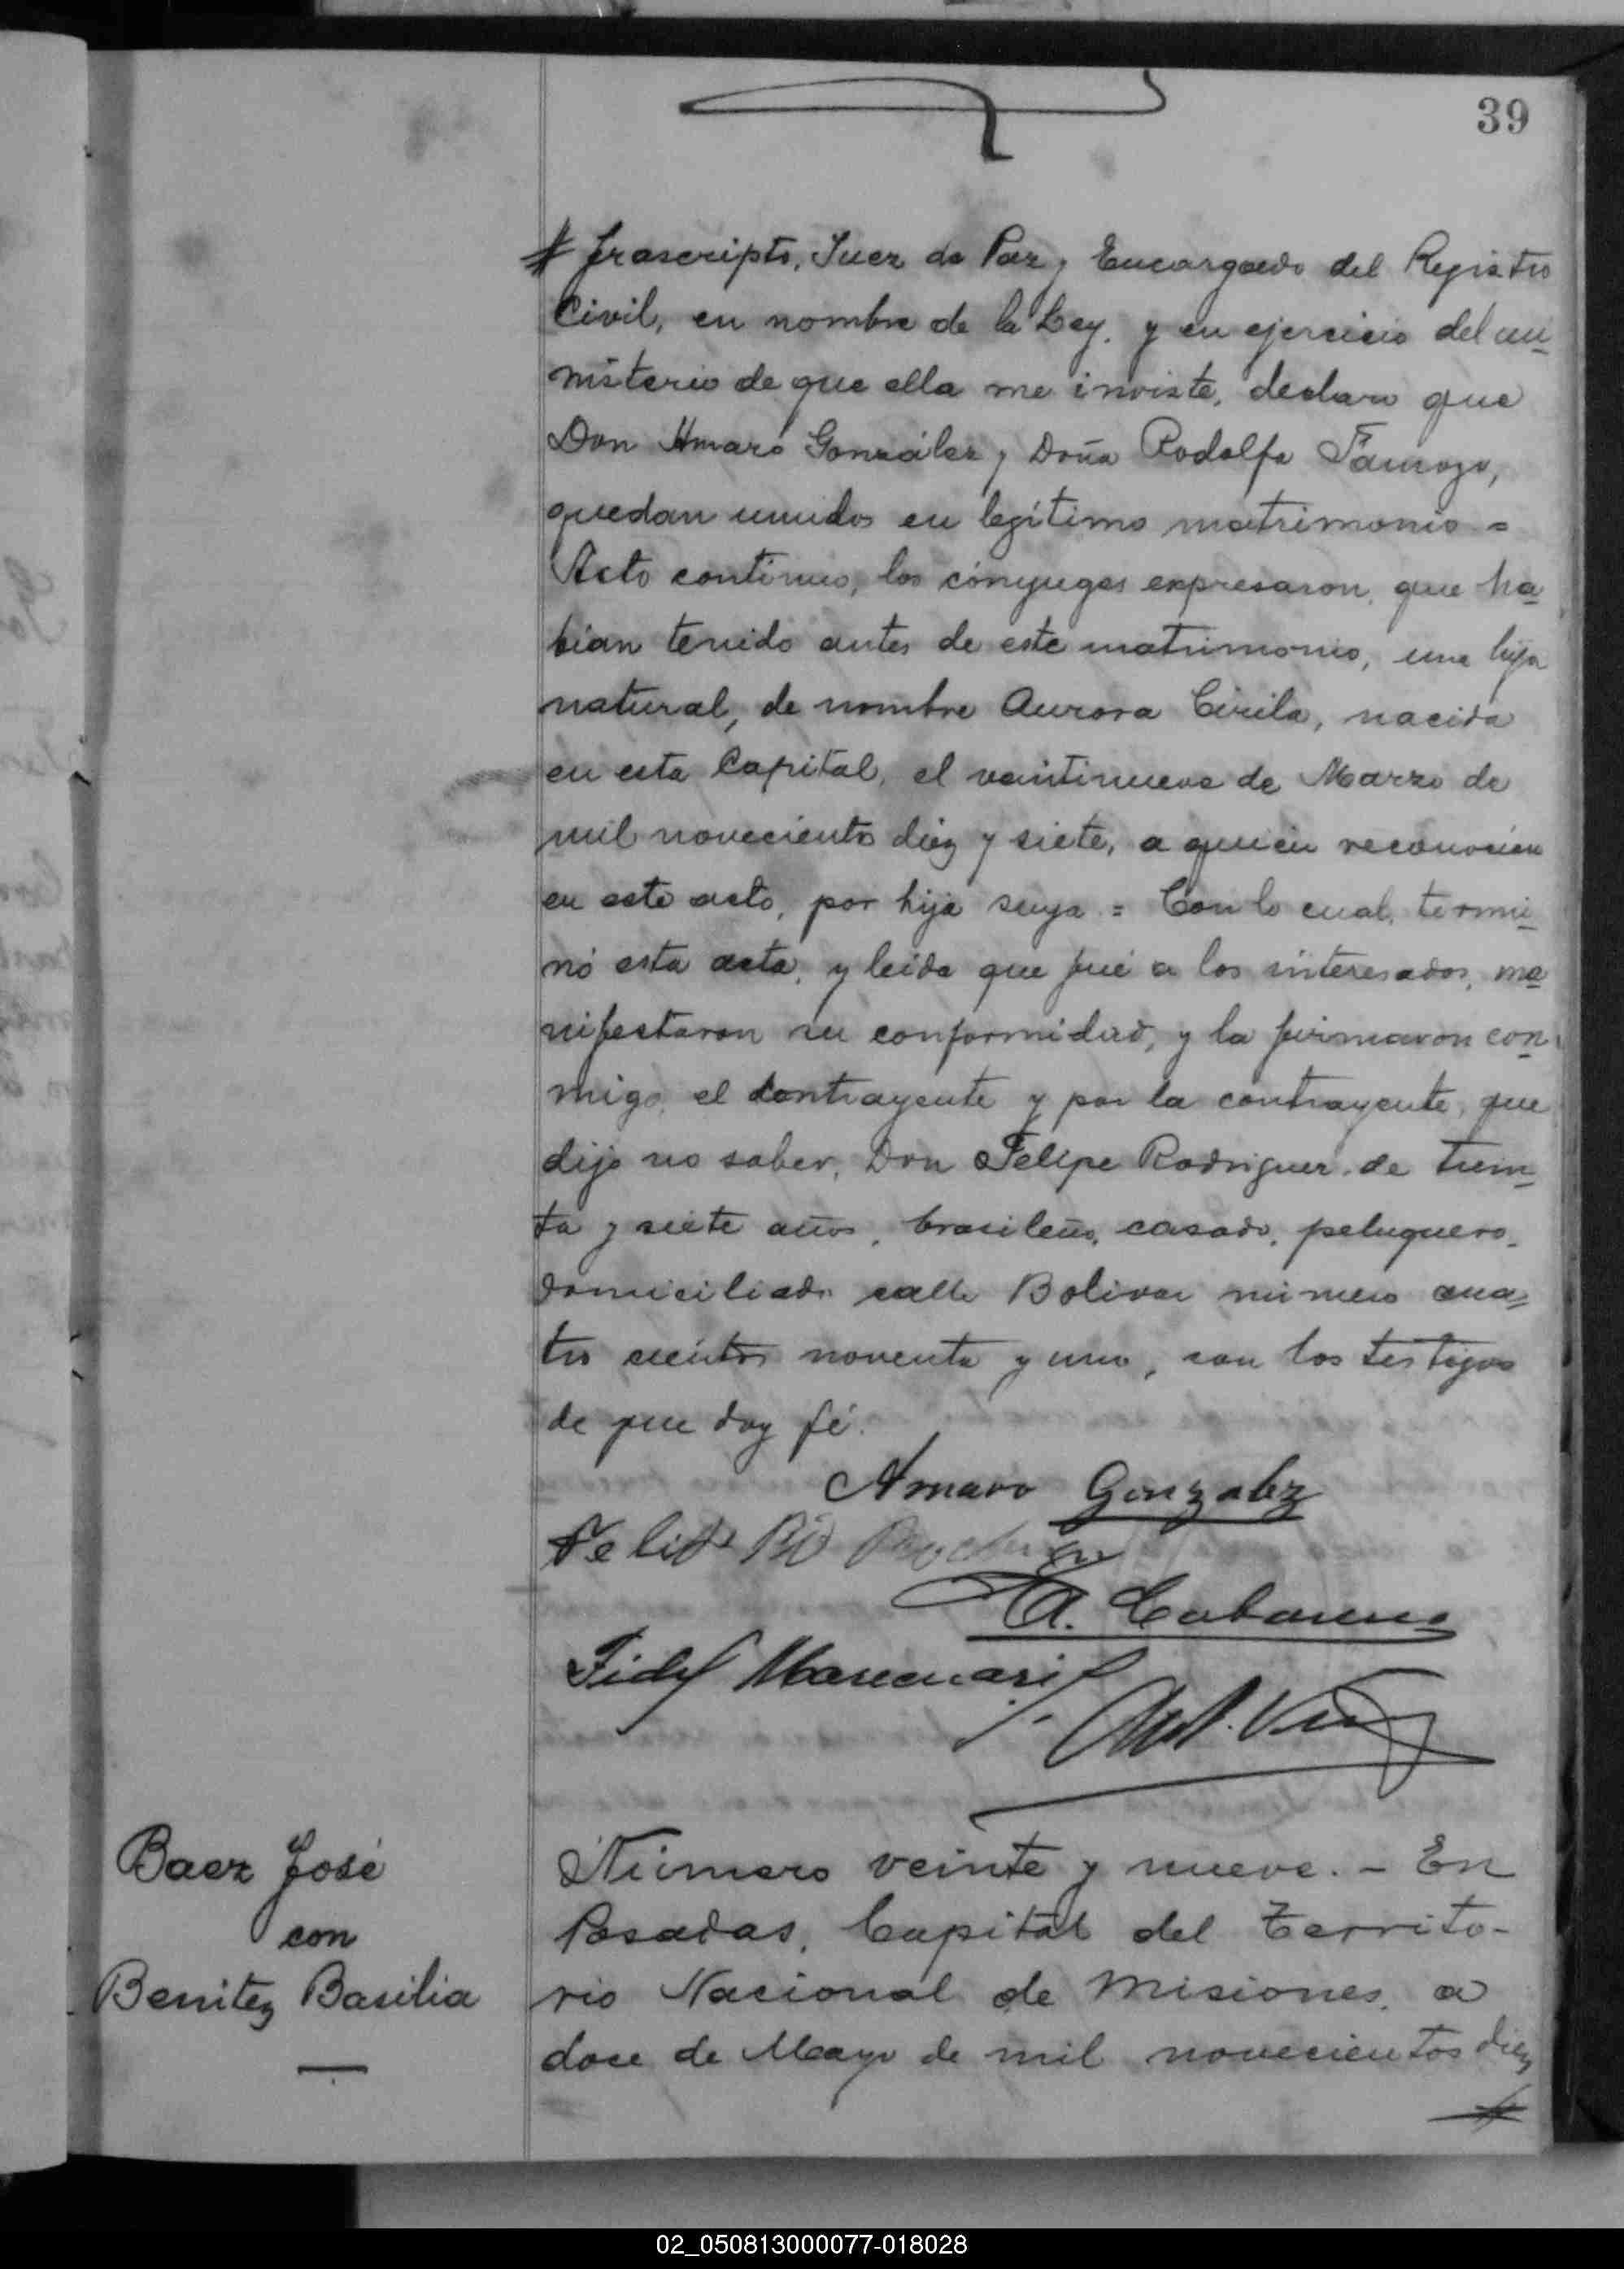 39
frascripto, Juez de Paz y Encargado del Registro
Civil, en nombre de la Ley, y en ejercicio del mi-
nisterio de que ella me inviste, declaro que
Don Amaro González y Doña Rodolfa
quedan unidos en legítimo matrimonio =
Acto continuo, los cónyuges expresaron, que ha-
bían tenido antes de este matrimonio, una hija
natural, de nombre Aurora Cirila, nacida
en esta Capital, el veintinueve de Marzo de
mil novecientos diez y siete, a quien reconocían
en este acto, por hija suya = Con lo cual, termi-
nó esta acta, y leída que fué a los interesados, ma-
nifestaron su conformidad, y la firmaron con-
migo, el contrayente y por la contrayente, que
dijo no saber, Don Felipe Rodriguez de trein-
ta y siete años, brasileño, casado, peluquero,
domiciliado calle Bolivar número cua-
tro cientos noventa y uno, con los testigos
de que doy fé.
Amaro Gonzalez
Felipe
A.
Fidel
Baez José
con
Benitez Basilia
Número veinte y nueve. - En
Posadas, Capital del Territo-
rio Nacional de Misiones, a
doce de Mayo de mil novecientos diez
02_050813000077-018028